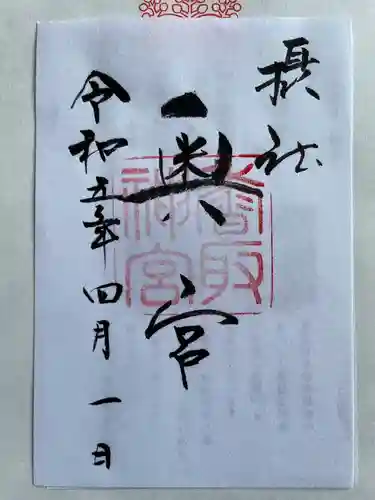 摂社
奥宮
令和五年四月一日
香取神宮